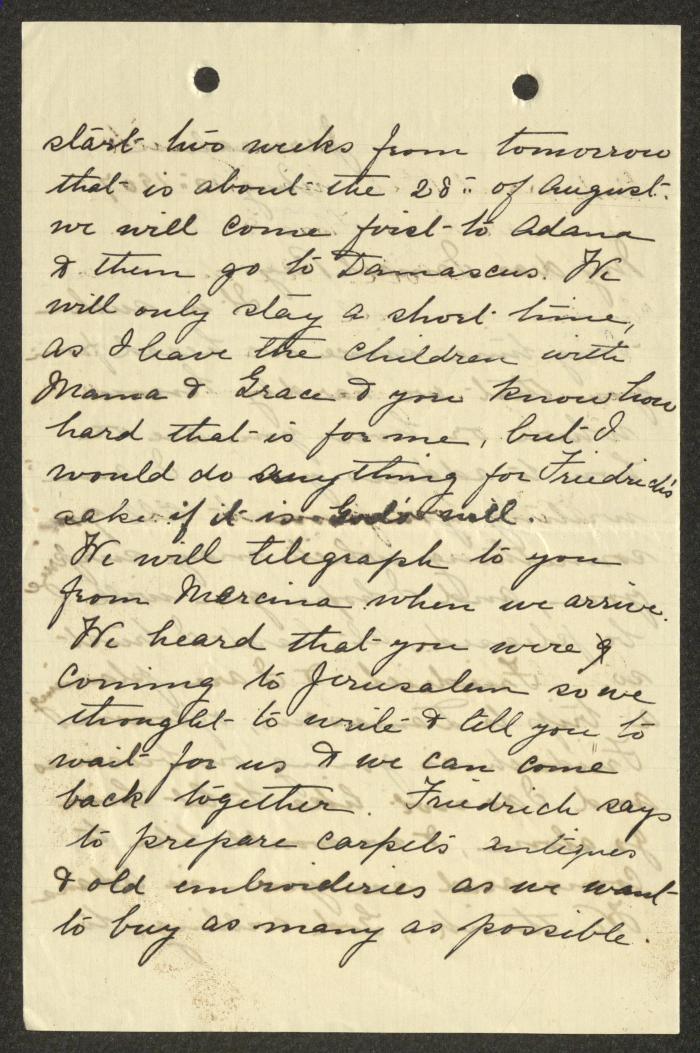 start two weeks from tomorrow
that is about the 28" of August.
we will come first to Adana
& them go to Damascus. We
will only stay a short time,
as I leave the children with
Mama & Grace & you know how
hard that is for me, but I
would do anything for Friedrich's
sake if it is God's will.
We will telegraph to you
from Mercina when we arrive.
We heard that you were
coming to Jerusalem so we
thought to write & tell you to
wait for us & we can come
back together. Friedrich says
to prepare carpets antiques
& old embroideries as we want
to buy as many as possible.